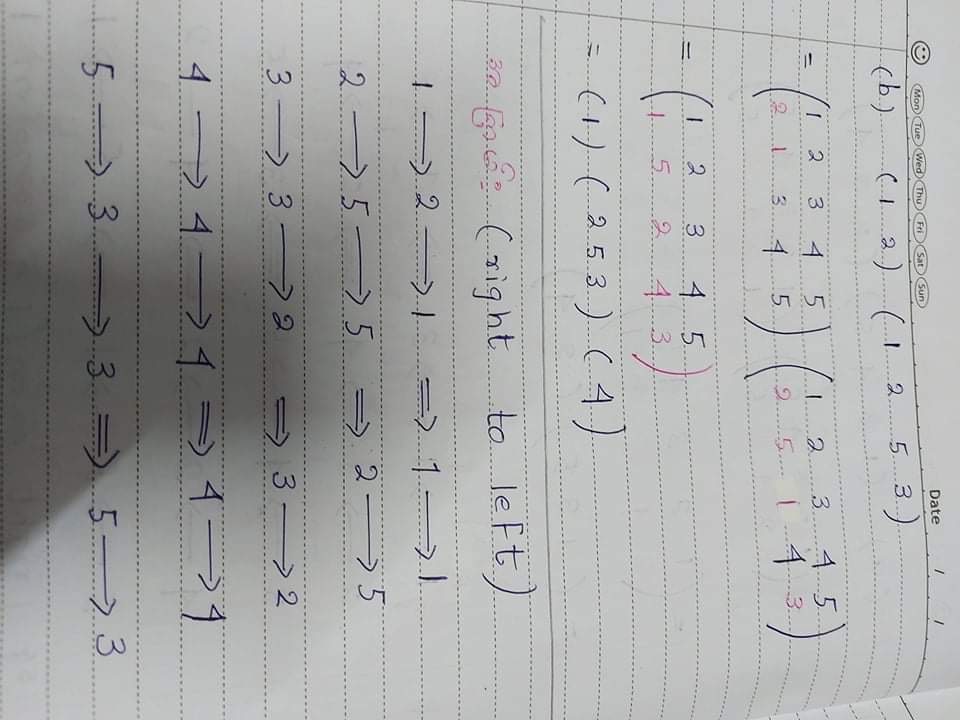 Mon Tue Wed Thu Fri Sat Sun Date / /
(b) (1 2) (1 2 5 3)
= (1 2 3 4 5) (1 2 3 4 5)
(2 1 3 4 5) (2 5 1 4 3)
= (1 2 3 4 5)
(1 5 2 4 3)
= (1) (2 5 3) (4)
(right to left)
1 → 2 → 1 ⇒ 1 → 1
2 → 5 → 5 ⇒ 2 → 5
3 → 3 → 2 ⇒ 3 → 2
4 → 4 → 4 ⇒ 4 → 4
5 → 3 → 3 ⇒ 5 → 3